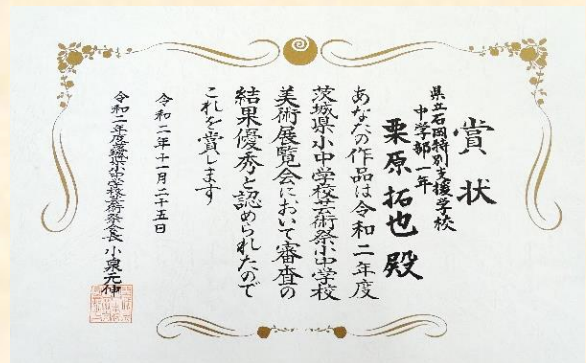 賞状
県立石岡特別支援学校
中学部一年
栗原拓也殿
あなたの作品は令和二年度
茨城県小中学校芸術祭小中学校
美術展覧会において審査の
結果優秀と認められたので
これを賞します
令和二年十一月二十五日
令和二年度茨城県小中学校芸術祭会長 小泉元伸